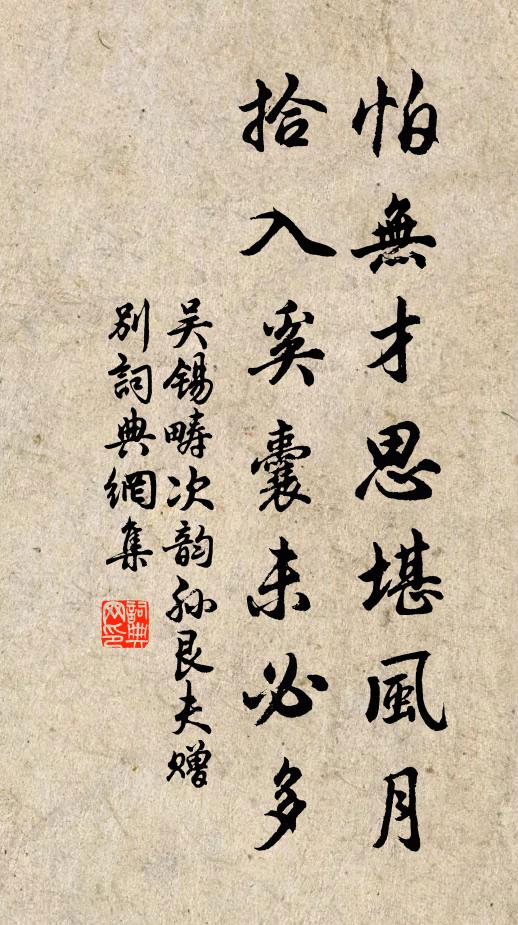 怕無才思堪風月
拾入奚囊未必多
吴锡畴次韵孙艮夫赠
别詞典網集
詞典
网印